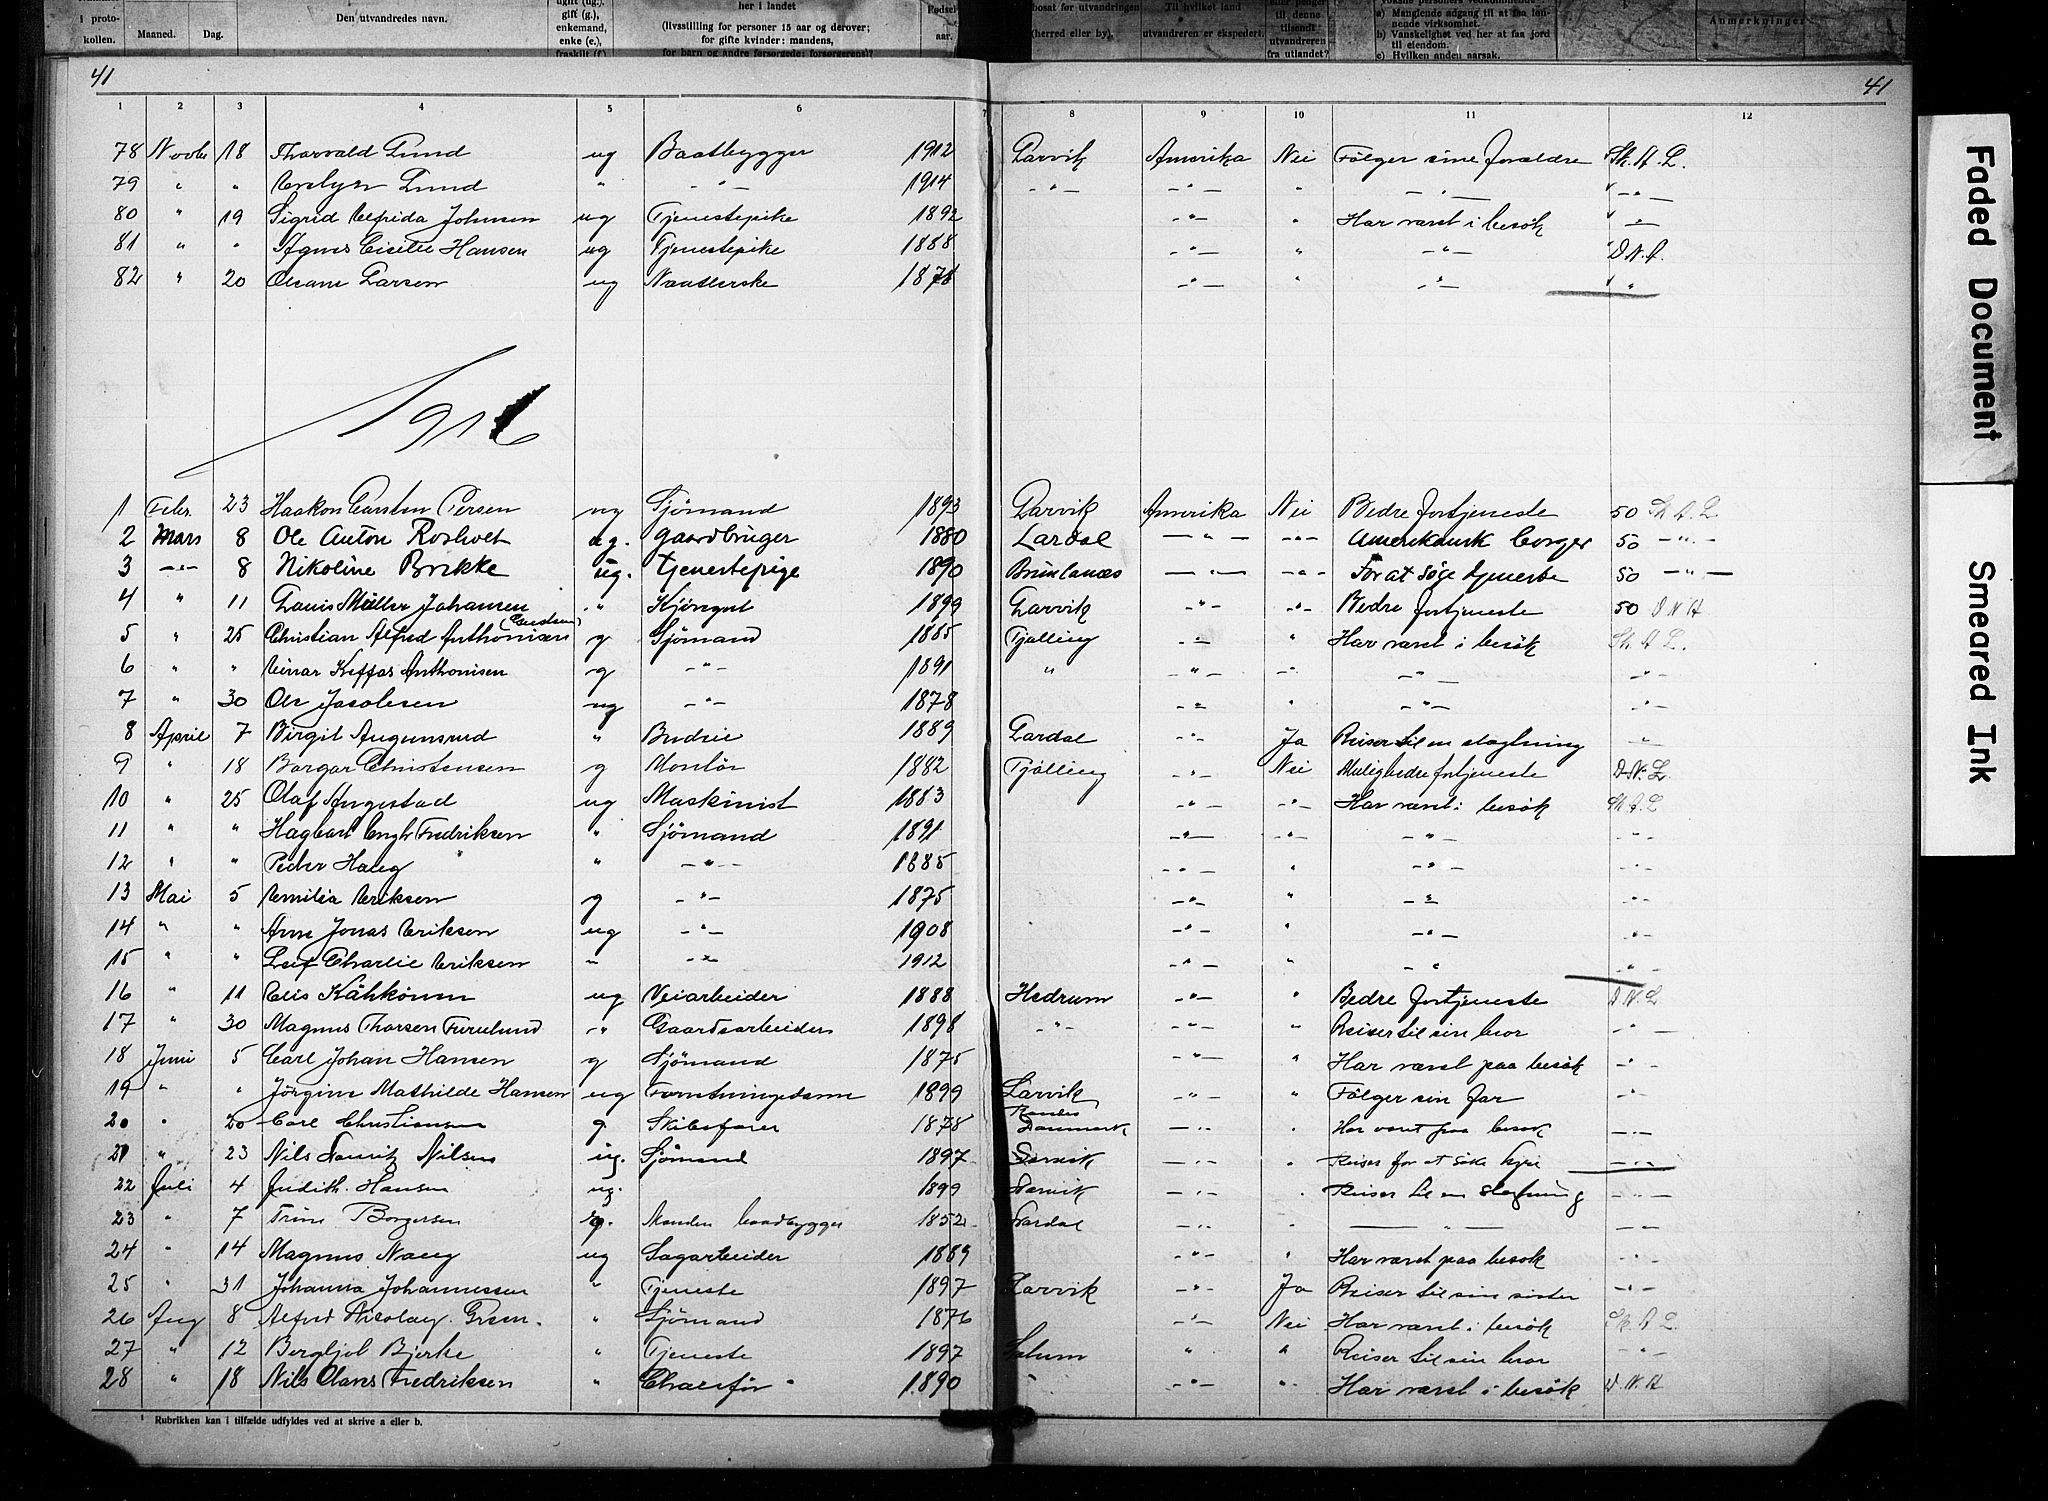 i proto-
kollen.
Maaned.
Dag.
Den utvandredes navn.
gift (g.),
enkemand,
enke (e.),
her i landet
(livsstilling for personer 15 aar og derover;
for gifte kvinder: mandens,
for barn og andre forsørgede: forsørgerens)?
Fødsels-
aar.
bosat før utvandringen
(herred eller by).
Til hvilket land
utvandreren er ekspedert.
til denne
tilsendt
utvandreren
fra utlandet?
a) Manglende adgang til at faa løn-
nende virksomhet.
b) Vanskelighet ved her at faa jord
til eiendom.
c) Hvilken anden aarsak.
Anmerkninger
41 41
1 2 3 4 5 6 7 8 9 10 11 12
78 Novbr 18 Thorvald Lund ug Baatbygger 1912 Larvik Amerika Nei Følger sine forældre Sk. A. L.
79 " " Evelyn Lund " -"- 1914 -"- -"- " -"- -"-
80 " 19 Sigrid Elfrida Johnsen ug Tjenestepike 1892 -"- " Har været i besøk -"-
81 " " Agnes Cicilie Hansen ug Tjenestepike 1888 -"- " -"- D. N. A.
82 " 20 Larsen ug 1878 -"- " -"- "
1916
1 Febr. 23 Haakon Carsten Persen ug Sjømand 1893 Larvik Amerika Nei Bedre fortjeneste 50 Sk A L
2 Mars 8 Ole Anton Rosholt ug. gaardbruger 1880 Lardal -"- -"- Amerikansk borger 50 -"-
3 -"- 8 Nikoline Brekke ug. tjenestepige 1890 Brunlanæs -"- -"- For at søge tjeneste 50 -"-
4 " 11 Louis Müller Johansen " Kjøregut 1899 Larvik -"- -"- Bedre fortjeneste 50 D N A
5 " 25 Christian Alfred Anthonisen g Sjømand 1885 Tjølling -"- " Har været i besøk Sk. A L.
6 " " Einar Keffas Anthonisen g -"- 1891 " -"- -"- -"- -"-
7 " 30 Ole Jacobsen ug -"- 1878 -"- " -"- -"-
8 April 7 Birgit Augunsrud " Budeie 1889 Lardal -"- Ja Reiser til en slægtning -"-
9 " 18 Borgar Christensen g Montør 1882 Tjølling -"- Nei Mulig bedre fortjeneste D. N. L
10 " 25 Olaf Angestad ug Maskinist 1883 -"- -"- Har været i besøk Sk A. L
11 " " Hagbart Engh Fredriksen " Sjømand 1891 -"- -"- -"- -"-
12 " " Peder Haug " -"- 1885 -"- " -"- -"-
13 Mai 5 Emilia Eriksen g -"- 1875 -"- " -"- -"-
14 " " Arne Jonas Eriksen ug -"- 1908 -"- " -"- -"-
15 " " Leif Charlie Eriksen -"- -"- 1912 -"- " -"- -"-
16 " 11 Elis Kähkönen ug Veiarbeider 1888 Hedrum -"- " Bedre fortjeneste D. N. L
17 " 30 Magnus Thorsen Furulund -"- Gaardsarbeider 1898 -"- -"- " Reiser til sin bror -"-
18 Juni 5 Carl Johan Hansen g Sjømand 1875 -"- " Har været paa besøk -"-
19 " " Jørgine Mathilde Hansen ug Forretningsdame 1899 Larvik -"- " Følger sin far -"-
20 " 20 Carl Christiansen g Skibsfører 1878 Danmark -"- " Har været paa besøk -"-
21 " 23 Nils Lauritz Nilsen ug. Sjømand 1897 Larvik -"- " Reiser for at søke hyre -"-
22 Juli 4 Judith Hansen ug. 1899 Larvik -"- " Reiser til en slegtning -"-
23 " 7 Trine Borgersen g. Manden baadbygger 1852 Lardal -"- " -"- -"-
24 " 14 Magnus Haug ug Sagarbeider 1889 -"- " Har været paa besøk -"-
25 " 31 Johanna Johannessen " Tjeneste 1897 Larvik -"- Ja Reiser til sin søster -"-
26 Aug 8 Alfred Nicolay Green. " Sjømand 1876 -"- Nei Har været i besøk Sk. A L.
27 " 12 Bergljot Bjerke " Tjeneste 1897 Solum " " Reiser til sin bror -"-
28 " 18 Nils Claus Fredriksen " Chauffør 1890 " -"- " Har været i besøk D. N. A
¹ Rubrikken kan i tilfælde udfyldes ved at skrive a eller b.
Faded Document
Smeared Ink